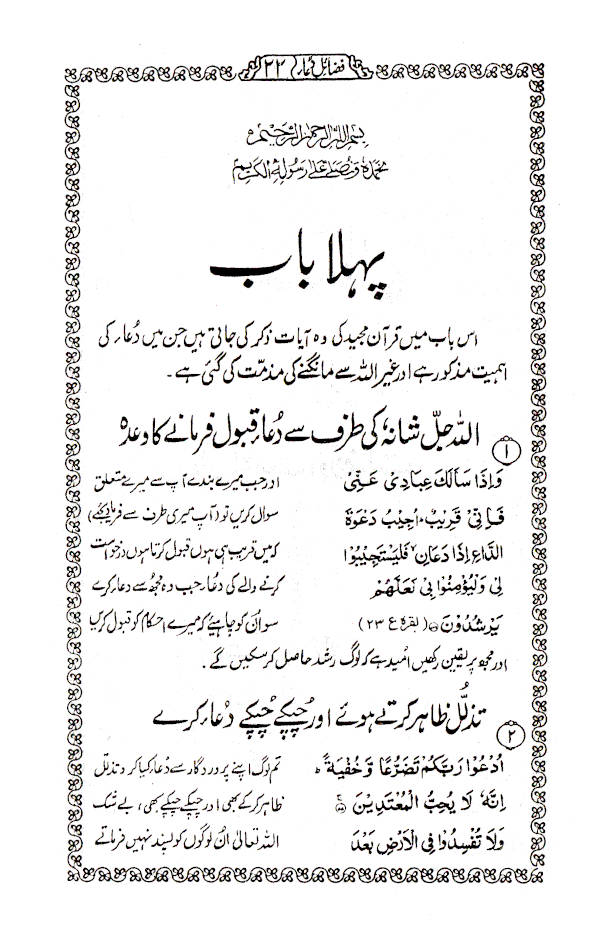 فضائل دعار ۲۲
بسم اللہ الرحمن الرحیم
نحمدہ ونصلی علی رسولہ الکریم
پہلا باب
اس باب میں قرآن مجید کی وہ آیات ذکر کی جاتی ہیں جن میں دُعار کی
اہمیت مذکور ہے اور غیر اللہ سے مانگنے کی مذمّت کی گئی ہے۔
۱ اللہ جلّ شانہٗ کی طرف سے دُعار قبول فرمانے کا وعدہ
وَاِذَا سَاَلَكَ عِبَادِیْ عَنِّیْ اور جب میرے بندے آپ سے میرے متعلق
فَاِنِّیْ قَرِیْبٌ ؕ اُجِیْبُ دَعْوَةَ سوال کریں تو (آپ میری طرف سے فرما دیجئے)
الدَّاعِ اِذَا دَعَانِ ۙ فَلْیَسْتَجِیْبُوْا کہ میں قریب ہی ہوں قبول کرتا ہوں درخواست
لِیْ وَلْیُؤْمِنُوْا بِیْ لَعَلَّهُمْ کرنے والے کی دُعار جب وہ مجھ سے دعار کرے
یَرْشُدُوْنَ ○ (بقرہ ع ۲۳) سو ان کو چاہیئے کہ میرے احکام کو قبول کریں
اور مجھ پر یقین رکھیں اُمید ہے کہ لوگ رشد حاصل کر سکیں گے۔
۲ تذلُّل ظاہر کرتے ہوئے اور چُپکے چُپکے دُعار کرے
اُدْعُوْا رَبَّكُمْ تَضَرُّعًا وَّخُفْیَةً ؕ تم لوگ اپنے پروردگار سے دُعار کیا کرو تذلل
اِنَّهٗ لَا یُحِبُّ الْمُعْتَدِیْنَ ○ ظاہر کر کے بھی اور چپکے چپکے بھی، بے شک
وَلَا تُفْسِدُوْا فِی الْاَرْضِ بَعْدَ اللہ تعالیٰ ان لوگوں کو پسند نہیں فرماتے